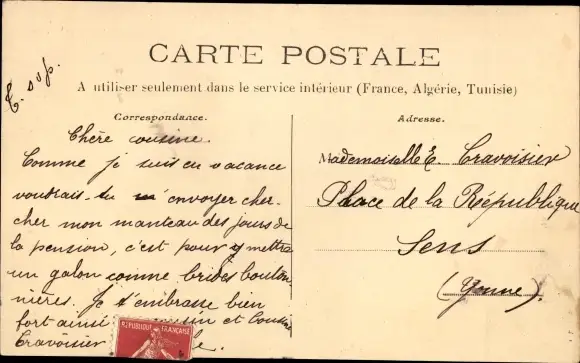 T. sup.
CARTE POSTALE
A utiliser seulement dans le service intérieur (France, Algérie, Tunisie)
Correspondance.
Chère cousine.
Comme je suis en vacance
voudrais-tu m'envoyer cher-
cher mon manteau des jours de
la pension, c'est pour y mettre
un galon comme brides bouton
nières. Je t'embrasse bien
fort ainsi cousin et Cousine
Cravoisier
RÉPUBLIQUE FRANÇAISE
Adresse.
Mademoiselle E. Cravoisier
Place de la République
Sens
(Yonne).